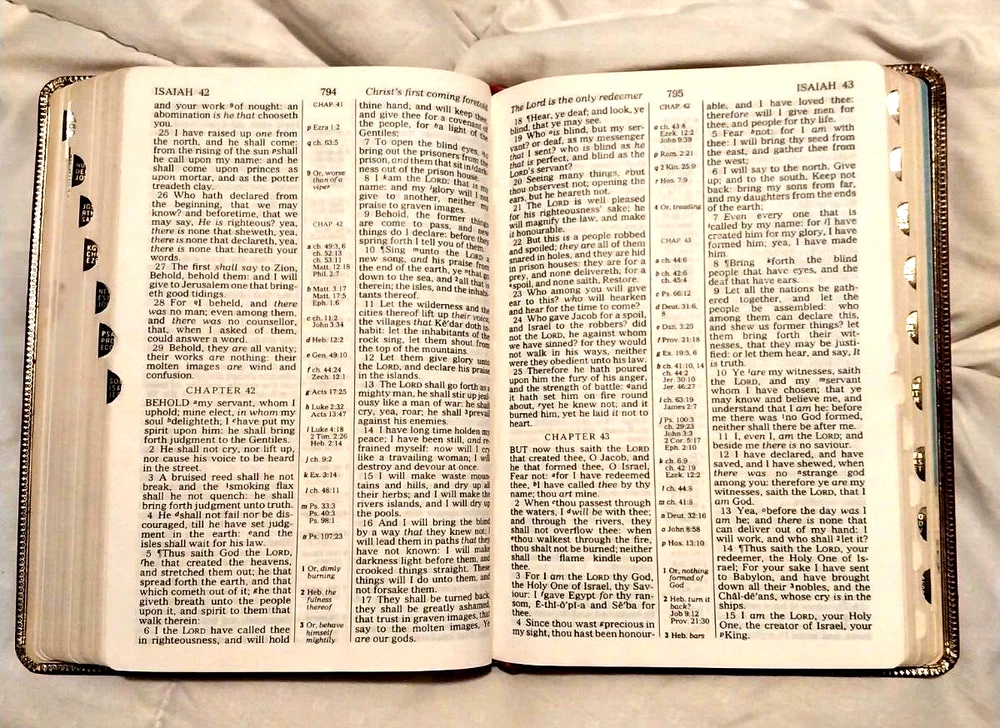 ISAIAH 42
794
Christ's first coming foretold
and your work of nought: an
abomination is he that chooseth
you.
25 I have raised up one from
the north, and he shall come:
from the rising of the sun shall
he call upon my name: and he
shall come upon princes as
upon mortar, and as the potter
treadeth clay.
26 Who hath declared from
the beginning, that we may
know? and beforetime, that we
may say, He is righteous? yea,
there is none that sheweth, yea,
there is none that declareth, yea,
there is none that heareth your
words.
27 The first shall say to Zion,
Behold, behold them: and I will
give to Jerusalem one that bring-
eth good tidings.
28 For I beheld, and there
was no man; even among them,
and there was no counsellor,
that, when I asked of them,
could answer a word.
29 Behold, they are all vanity;
their works are nothing: their
molten images are wind and
confusion.
CHAPTER 42
BEHOLD my servant, whom I
uphold; mine elect, in whom my
soul delighteth; I have put my
spirit upon him: he shall bring
forth judgment to the Gentiles.
2 He shall not cry, nor lift up,
nor cause his voice to be heard
in the street.
3 A bruised reed shall he not
break, and the smoking flax
shall he not quench: he shall
bring forth judgment unto truth.
4 He shall not fail nor be dis-
couraged, till he have set judg-
ment in the earth: and the
isles shall wait for his law.
5 ¶Thus saith God the LORD,
he that created the heavens,
and stretched them out; he that
spread forth the earth, and that
which cometh out of it; he that
giveth breath unto the people
upon it, and spirit to them that
walk therein:
6 I the LORD have called thee
in righteousness, and will hold
CHAP. 41
p Ezra 1:2
q ch. 63:5
9 Or, worse
than of a
viper
CHAP. 42
a ch. 49:3, 6
ch. 52:13
ch. 53:11
Matt. 12:18
Phil. 2:7
b Matt. 3:17
Matt. 17:5
Eph. 1:6
c ch. 11:2
John 3:34
d Heb. 12:2
e Gen. 49:10
f ch. 44:24
Zech. 12:1
g Acts 17:25
h Luke 2:32
Acts 13:47
i Luke 4:18
2 Tim. 2:26
Heb. 2:14
j ch. 9:2
k Ex. 3:14
l ch. 48:11
m Ps. 33:3
Ps. 40:3
Ps. 98:1
n Ps. 107:23
1 Or, dimly
burning
2 Heb. the
fulness
thereof
3 Or, behave
himself
mightily
thine hand, and will keep thee,
and give thee for a covenant of
the people, for a light of the
Gentiles;
7 To open the blind eyes, to
bring out the prisoners from the
prison, and them that sit in dark-
ness out of the prison house.
8 I am the LORD: that is my
name: and my glory will I not
give to another, neither my
praise to graven images.
9 Behold, the former things
are come to pass, and new
things do I declare: before they
spring forth I tell you of them.
10 ¶Sing unto the LORD a
new song, and his praise from
the end of the earth, ye that go
down to the sea, and all that is
therein; the isles, and the inhabi-
tants thereof.
11 Let the wilderness and the
cities thereof lift up their voice,
the villages that Kē'dar doth in-
habit: let the inhabitants of the
rock sing, let them shout from
the top of the mountains.
12 Let them give glory unto
the LORD, and declare his praise
in the islands.
13 The LORD shall go forth as a
mighty man, he shall stir up jeal-
ousy like a man of war: he shall
cry, yea, roar; he shall prevail
against his enemies.
14 I have long time holden my
peace; I have been still, and re-
frained myself: now will I cry
like a travailing woman; I will
destroy and devour at once.
15 I will make waste moun-
tains and hills, and dry up all
their herbs; and I will make the
rivers islands, and I will dry up
the pools.
16 And I will bring the blind
by a way that they knew not; I
will lead them in paths that they
have not known: I will make
darkness light before them, and
crooked things straight. These
things will I do unto them, and
not forsake them.
17 They shall be turned back,
they shall be greatly ashamed,
that trust in graven images, that
say to the molten images, Ye
are our gods.
The Lord is the only redeemer
795
ISAIAH 43
18 ¶Hear, ye deaf; and look, ye
blind, that ye may see.
19 Who is blind, but my ser-
vant? or deaf, as my messenger
that I sent? who is blind as he
that is perfect, and blind as the
LORD'S servant?
20 Seeing many things, but
thou observest not; opening the
ears, but he heareth not.
21 The LORD is well pleased
for his righteousness' sake; he
will magnify the law, and make
it honourable.
22 But this is a people robbed
and spoiled; they are all of them
snared in holes, and they are hid
in prison houses: they are for a
prey, and none delivereth; for a
spoil, and none saith, Restore.
23 Who among you will give
ear to this? who will hearken
and hear for the time to come?
24 Who gave Jacob for a spoil,
and Israel to the robbers? did
not the LORD, he against whom
we have sinned? for they would
not walk in his ways, neither
were they obedient unto his law.
25 Therefore he hath poured
upon him the fury of his anger,
and the strength of battle: and
it hath set him on fire round
about, yet he knew not; and it
burned him, yet he laid it not to
heart.
CHAPTER 43
BUT now thus saith the LORD
that created thee, O Jacob, and
he that formed thee, O Israel,
Fear not: for I have redeemed
thee, I have called thee by thy
name; thou art mine.
2 When thou passest through
the waters, I will be with thee;
and through the rivers, they
shall not overflow thee: when
thou walkest through the fire,
thou shalt not be burned; neither
shall the flame kindle upon
thee.
3 For I am the LORD thy God,
the Holy One of Israel, thy Sav-
iour: I gave Egypt for thy ran-
som, Ē-thĭ-ō'pĭ-a and Sē'ba for
thee.
4 Since thou wast precious in
my sight, thou hast been honour-
CHAP. 42
o ch. 43:8
Ezek. 12:2
John 9:39
p Rom. 2:21
q 2 Kin. 25:9
r Hos. 7:9
4 Or, treading
CHAP. 43
a ch. 44:6
b ch. 42:6
ch. 45:4
c Ps. 66:12
d Deut. 31:6,
8
e Dan. 3:25
f Prov. 21:18
g Ex. 19:5, 6
h ch. 41:10, 14
ch. 44:2
Jer. 30:10
Jer. 46:27
i ch. 63:19
James 2:7
j Ps. 100:3
ch. 29:23
John 3:3
2 Cor. 5:17
Eph. 2:10
k ch. 6:9
ch. 42:19
Ezek. 12:2
l ch. 44:8
m ch. 41:8
n Deut. 32:16
o John 8:58
p Hos. 13:10
1 Or, nothing
formed of
God
2 Heb. turn it
back?
Job 9:12
Prov. 21:30
3 Heb. bars
able, and I have loved thee:
therefore will I give men for
thee, and people for thy life.
5 Fear not: for I am with
thee: I will bring thy seed from
the east, and gather thee from
the west;
6 I will say to the north, Give
up; and to the south, Keep not
back: bring my sons from far,
and my daughters from the ends
of the earth;
7 Even every one that is
called by my name: for I have
created him for my glory, I have
formed him; yea, I have made
him.
8 ¶Bring forth the blind
people that have eyes, and the
deaf that have ears.
9 Let all the nations be gath-
ered together, and let the
people be assembled: who
among them can declare this,
and shew us former things? let
them bring forth their wit-
nesses, that they may be justi-
fied: or let them hear, and say, It
is truth.
10 Ye are my witnesses, saith
the LORD, and my servant
whom I have chosen: that ye
may know and believe me, and
understand that I am he: before
me there was no God formed,
neither shall there be after me.
11 I, even I, am the LORD; and
beside me there is no saviour.
12 I have declared, and have
saved, and I have shewed, when
there was no strange god
among you: therefore ye are my
witnesses, saith the LORD, that I
am God.
13 Yea, before the day was I
am he; and there is none that
can deliver out of my hand: I
will work, and who shall let it?
14 ¶Thus saith the LORD, your
redeemer, the Holy One of Is-
rael; For your sake I have sent
to Babylon, and have brought
down all their nobles, and the
Chăl-dē'ans, whose cry is in the
ships.
15 I am the LORD, your Holy
One, the creator of Israel, your
King.